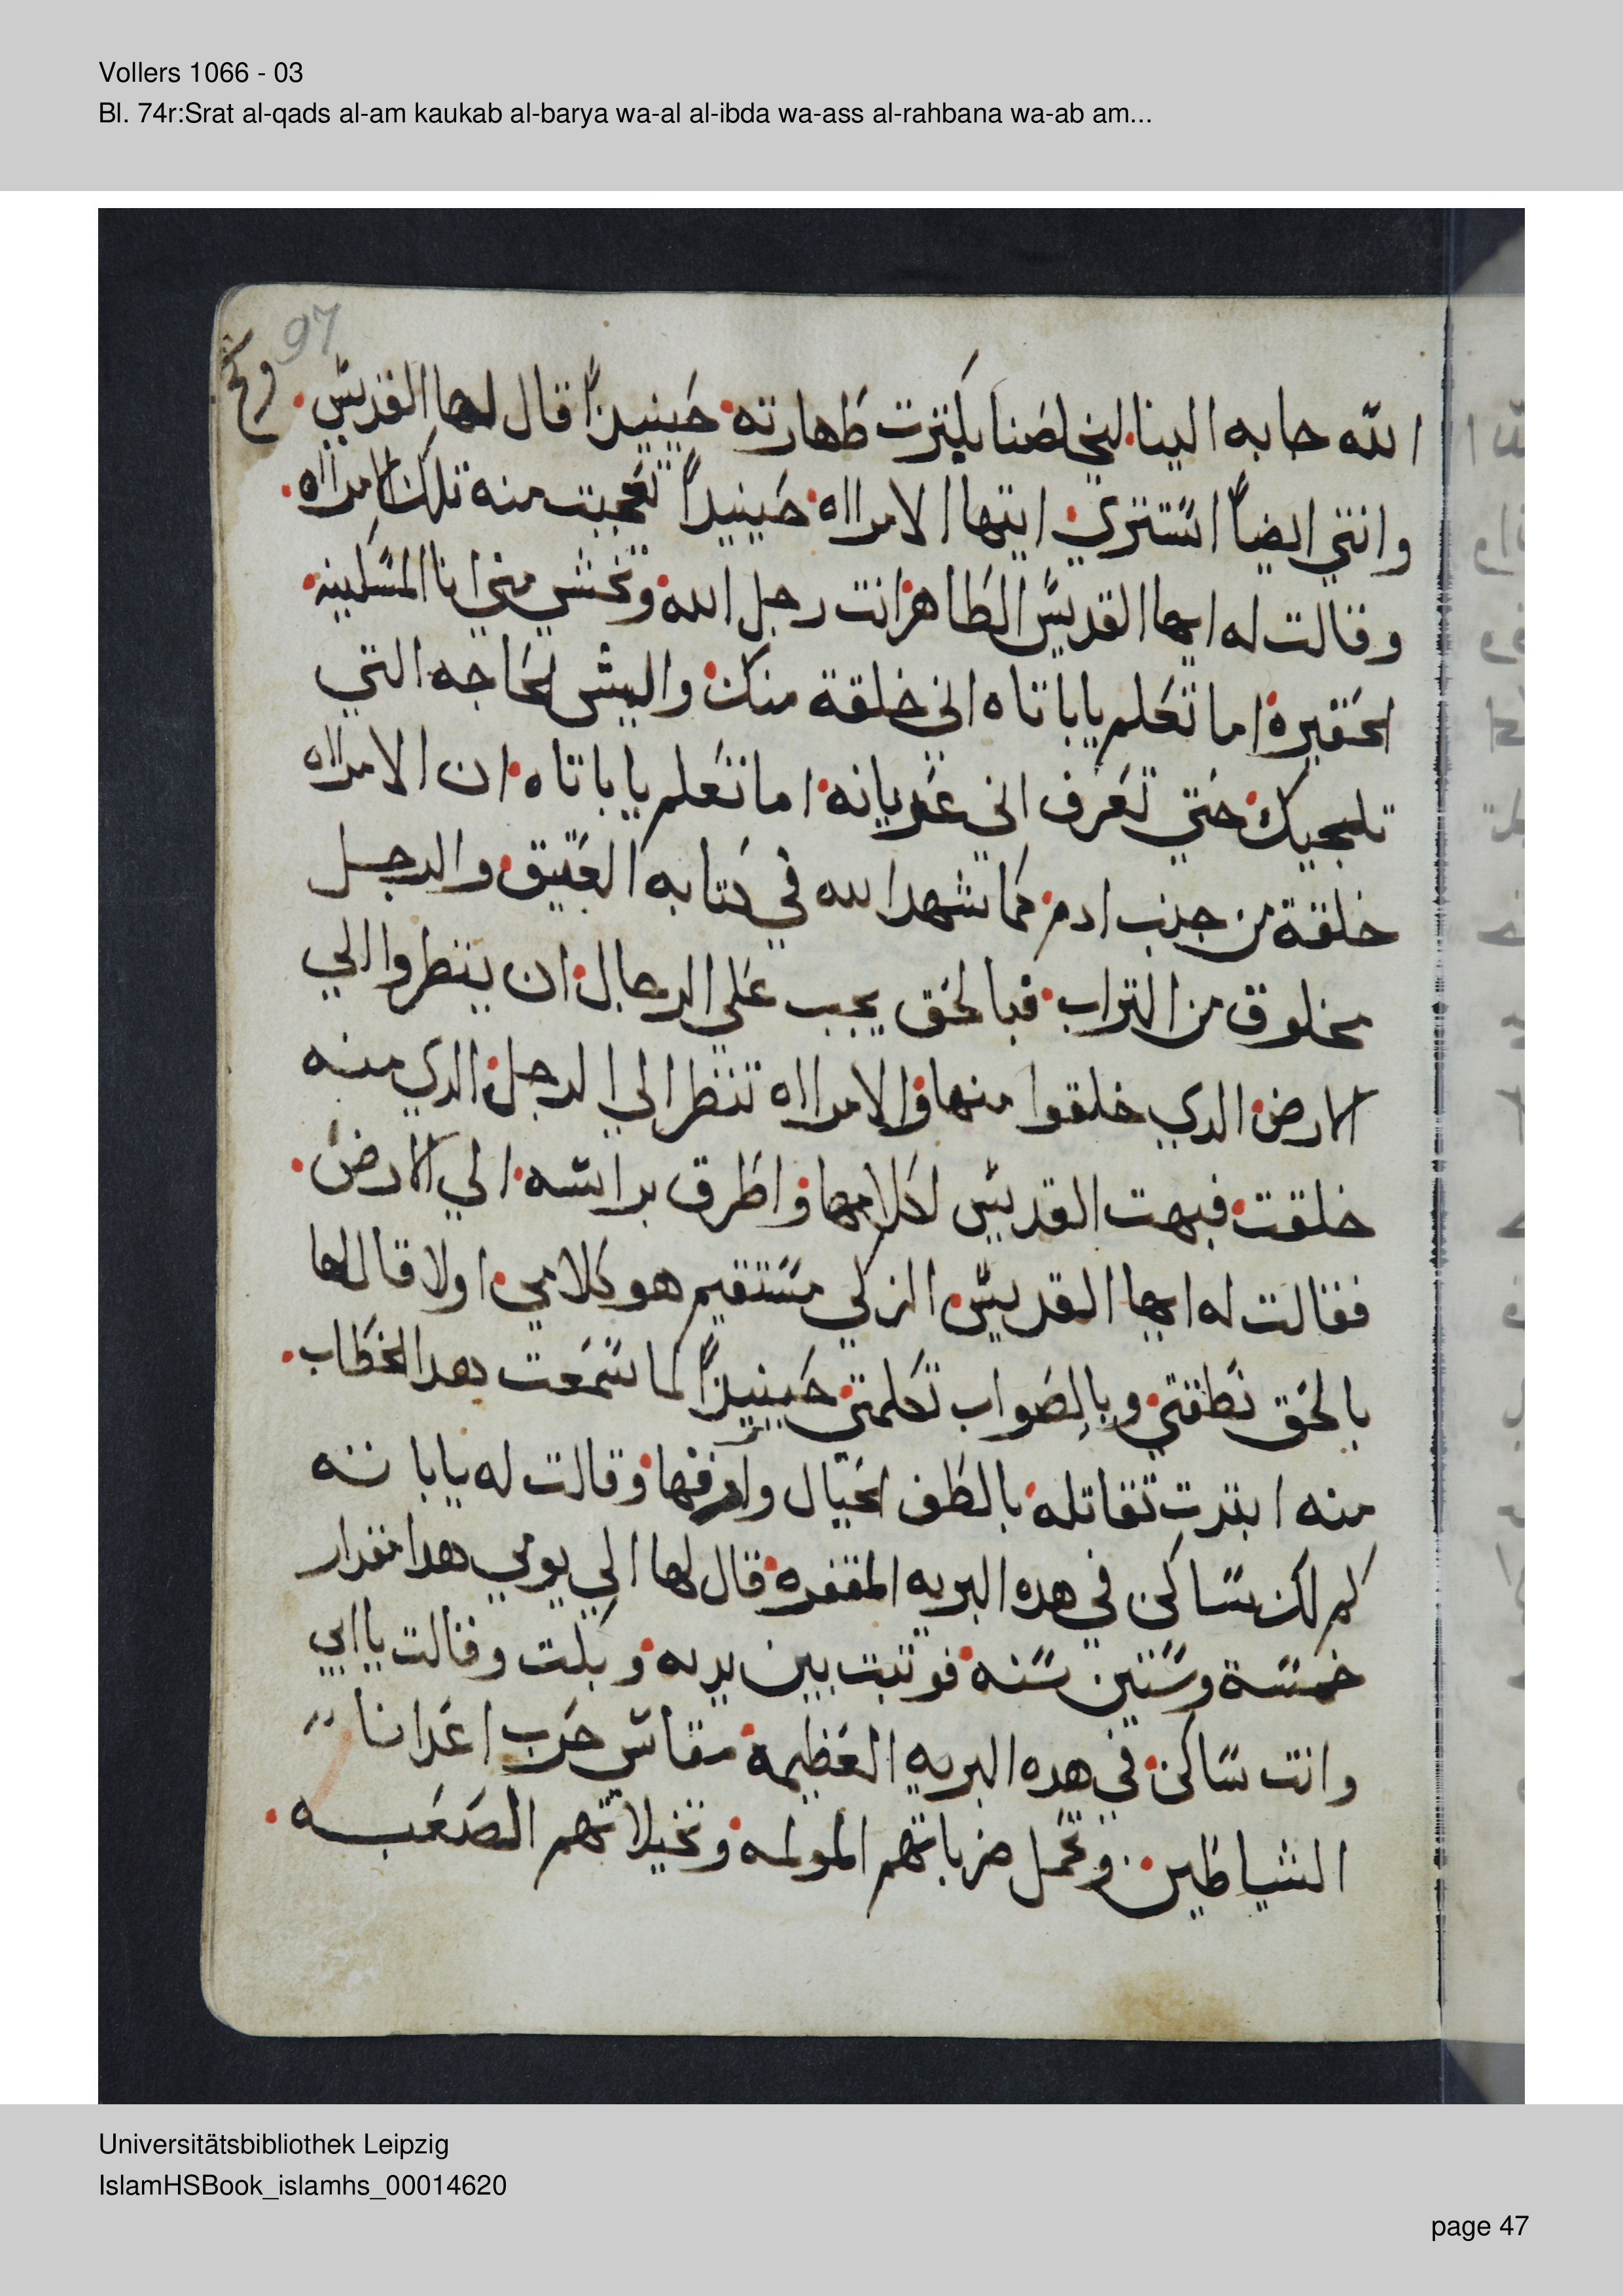 Vollers 1066 - 03
Bl. 74r:Srat al-qads al-am kaukab al-barya wa-al al-ibda wa-ass al-rahbana wa-ab am...
97
الله جابه الينا ليخلصنا بكترت طهارته حينيداً قال لها القديس
وانتي ايضاً استتري ايتها الامرااه حينيداً تعجبت منه تلك الامرااه
وقالت له ايها القديس الطاهر انت رجل الله وتخشي مني انا المسكينه
الحقيره اما تعلم يا باتاه اني خلقة منك واليش لحاجه التي
تلجيك حتي تعرف اني عريانه اما تعلم يا باتاه ان الامرااه
خلقة من جنب ادم كما شهد الله في كتابه العتيق والرجل
مخلوق من التراب فبالحق يجب علي الرجال ان ينظروا الي
الارض الدي خلقوا منها والامرااه تنظر الي الرجل الدي منه
خلقت فبهت القديس لكلامها واطرق براسه الي الارض
فقالت له ايها القديس الزكي مستقيم هو كلامي اولا قال لها
بالحق نطقتي وبالصواب تكلمتي حينيداً لما سمعت هدا الخطاب
منه ابتدت تقاتله بالطف الحيال وارفقها وقالت له يا باتنه
كم لك ساكن في هده البريه المقفره قال لها الي يومي هدا مقدار
خمسة وستين سنه فوتبت بين يديه وبكت وقالت يا ابي
وانت ساكن في هده البريه العظيمة مقاس حرب اعدانا
الشياطين وتحمل ضرباتهم المولمه وتخيلاتهم الصعبه
Universitätsbibliothek Leipzig
IslamHSBook_islamhs_00014620
page 47